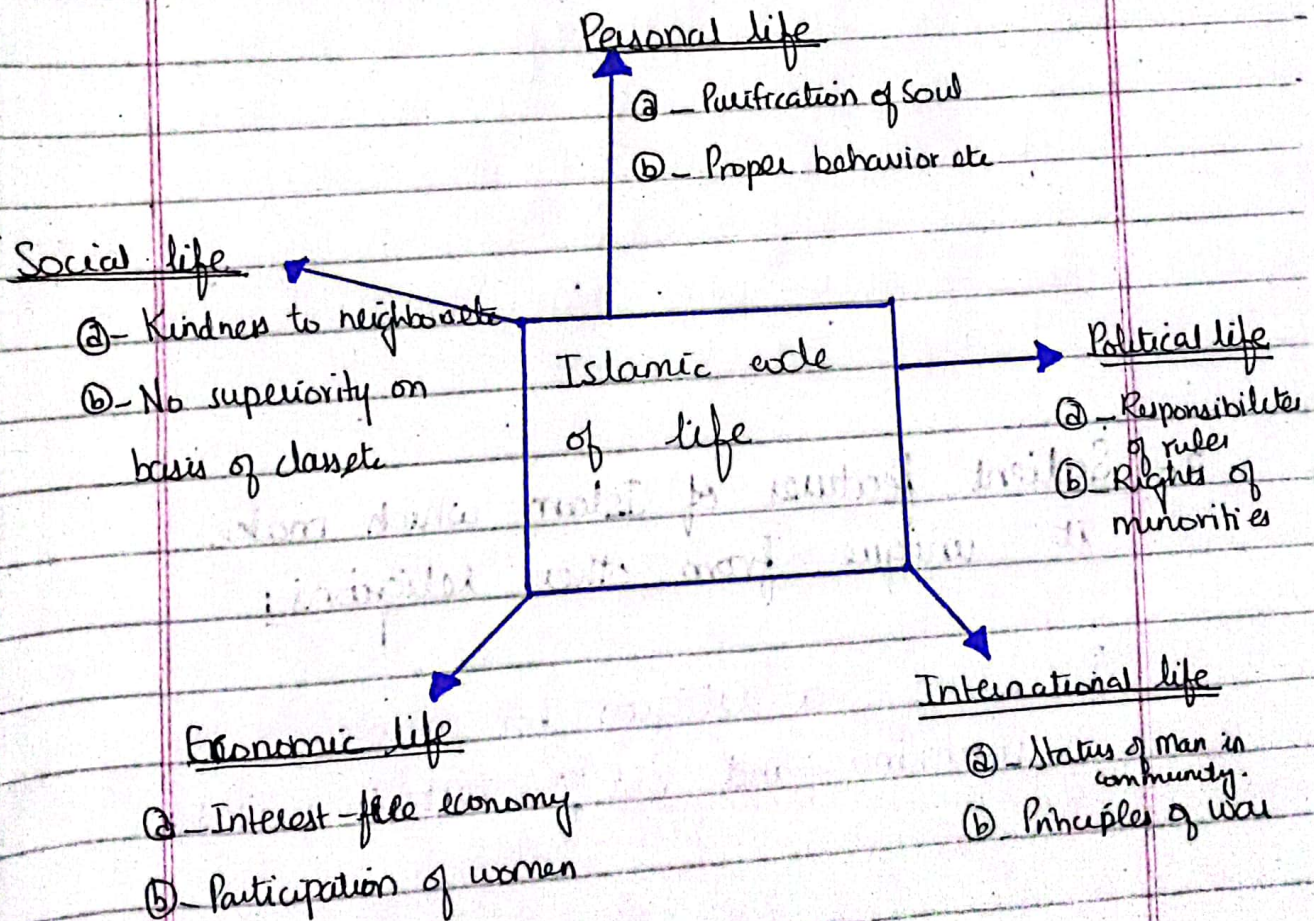 Personal life
ⓐ - Purification of Soul
ⓑ - Proper behavior etc
Social life
ⓐ - Kindness to neighbors etc
ⓑ - No superiority on
basis of class etc
Islamic code
of life
Political life
ⓐ - Responsibilites
of ruler
ⓑ - Rights of
minorities
Economic life
ⓐ - Interest-free economy
ⓑ - Participation of women
International life
ⓐ - Status of Man in
community.
ⓑ - Principles of war